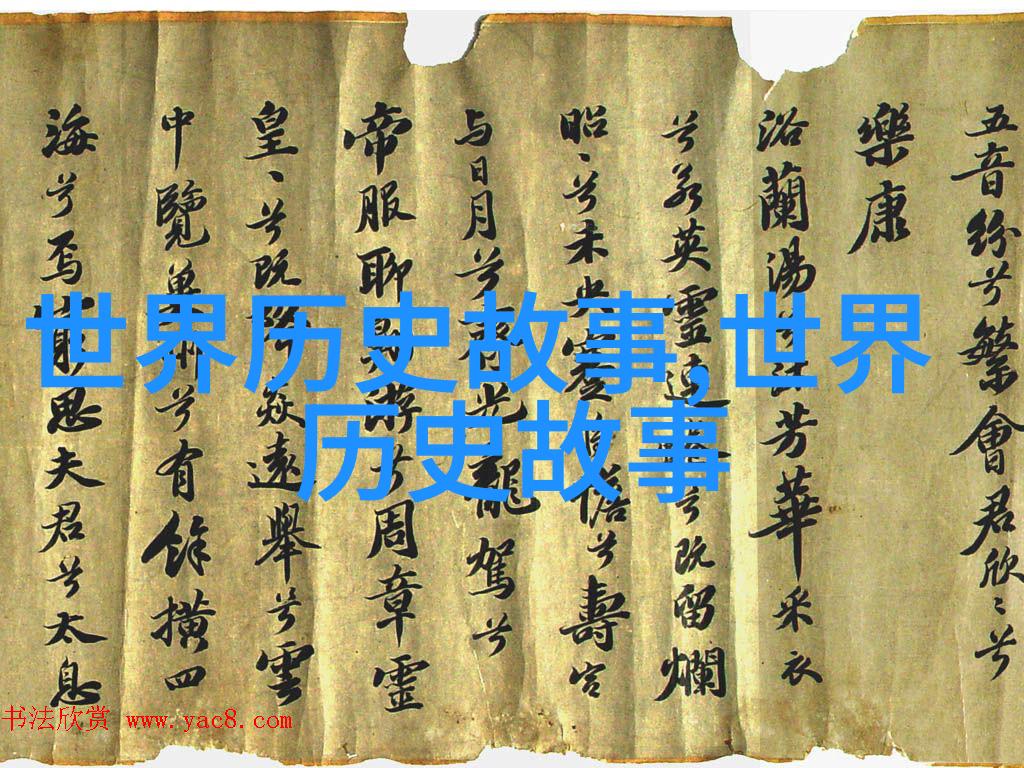 五音紛兮繁會君欣〻兮
樂康
浴蘭湯兮沐芳華采衣
兮若英靈連蜷兮既留爛
昭〻兮未央憺兮壽宮
与日月兮齊光龍駕兮
帝服聊游兮周章靈
皇〻兮既降猋遠舉兮雲
中覽冀州兮有餘橫四
海兮焉窮思夫君兮太息
世界历史故事,世界
历史故事
书法欣赏 www.yac8.com